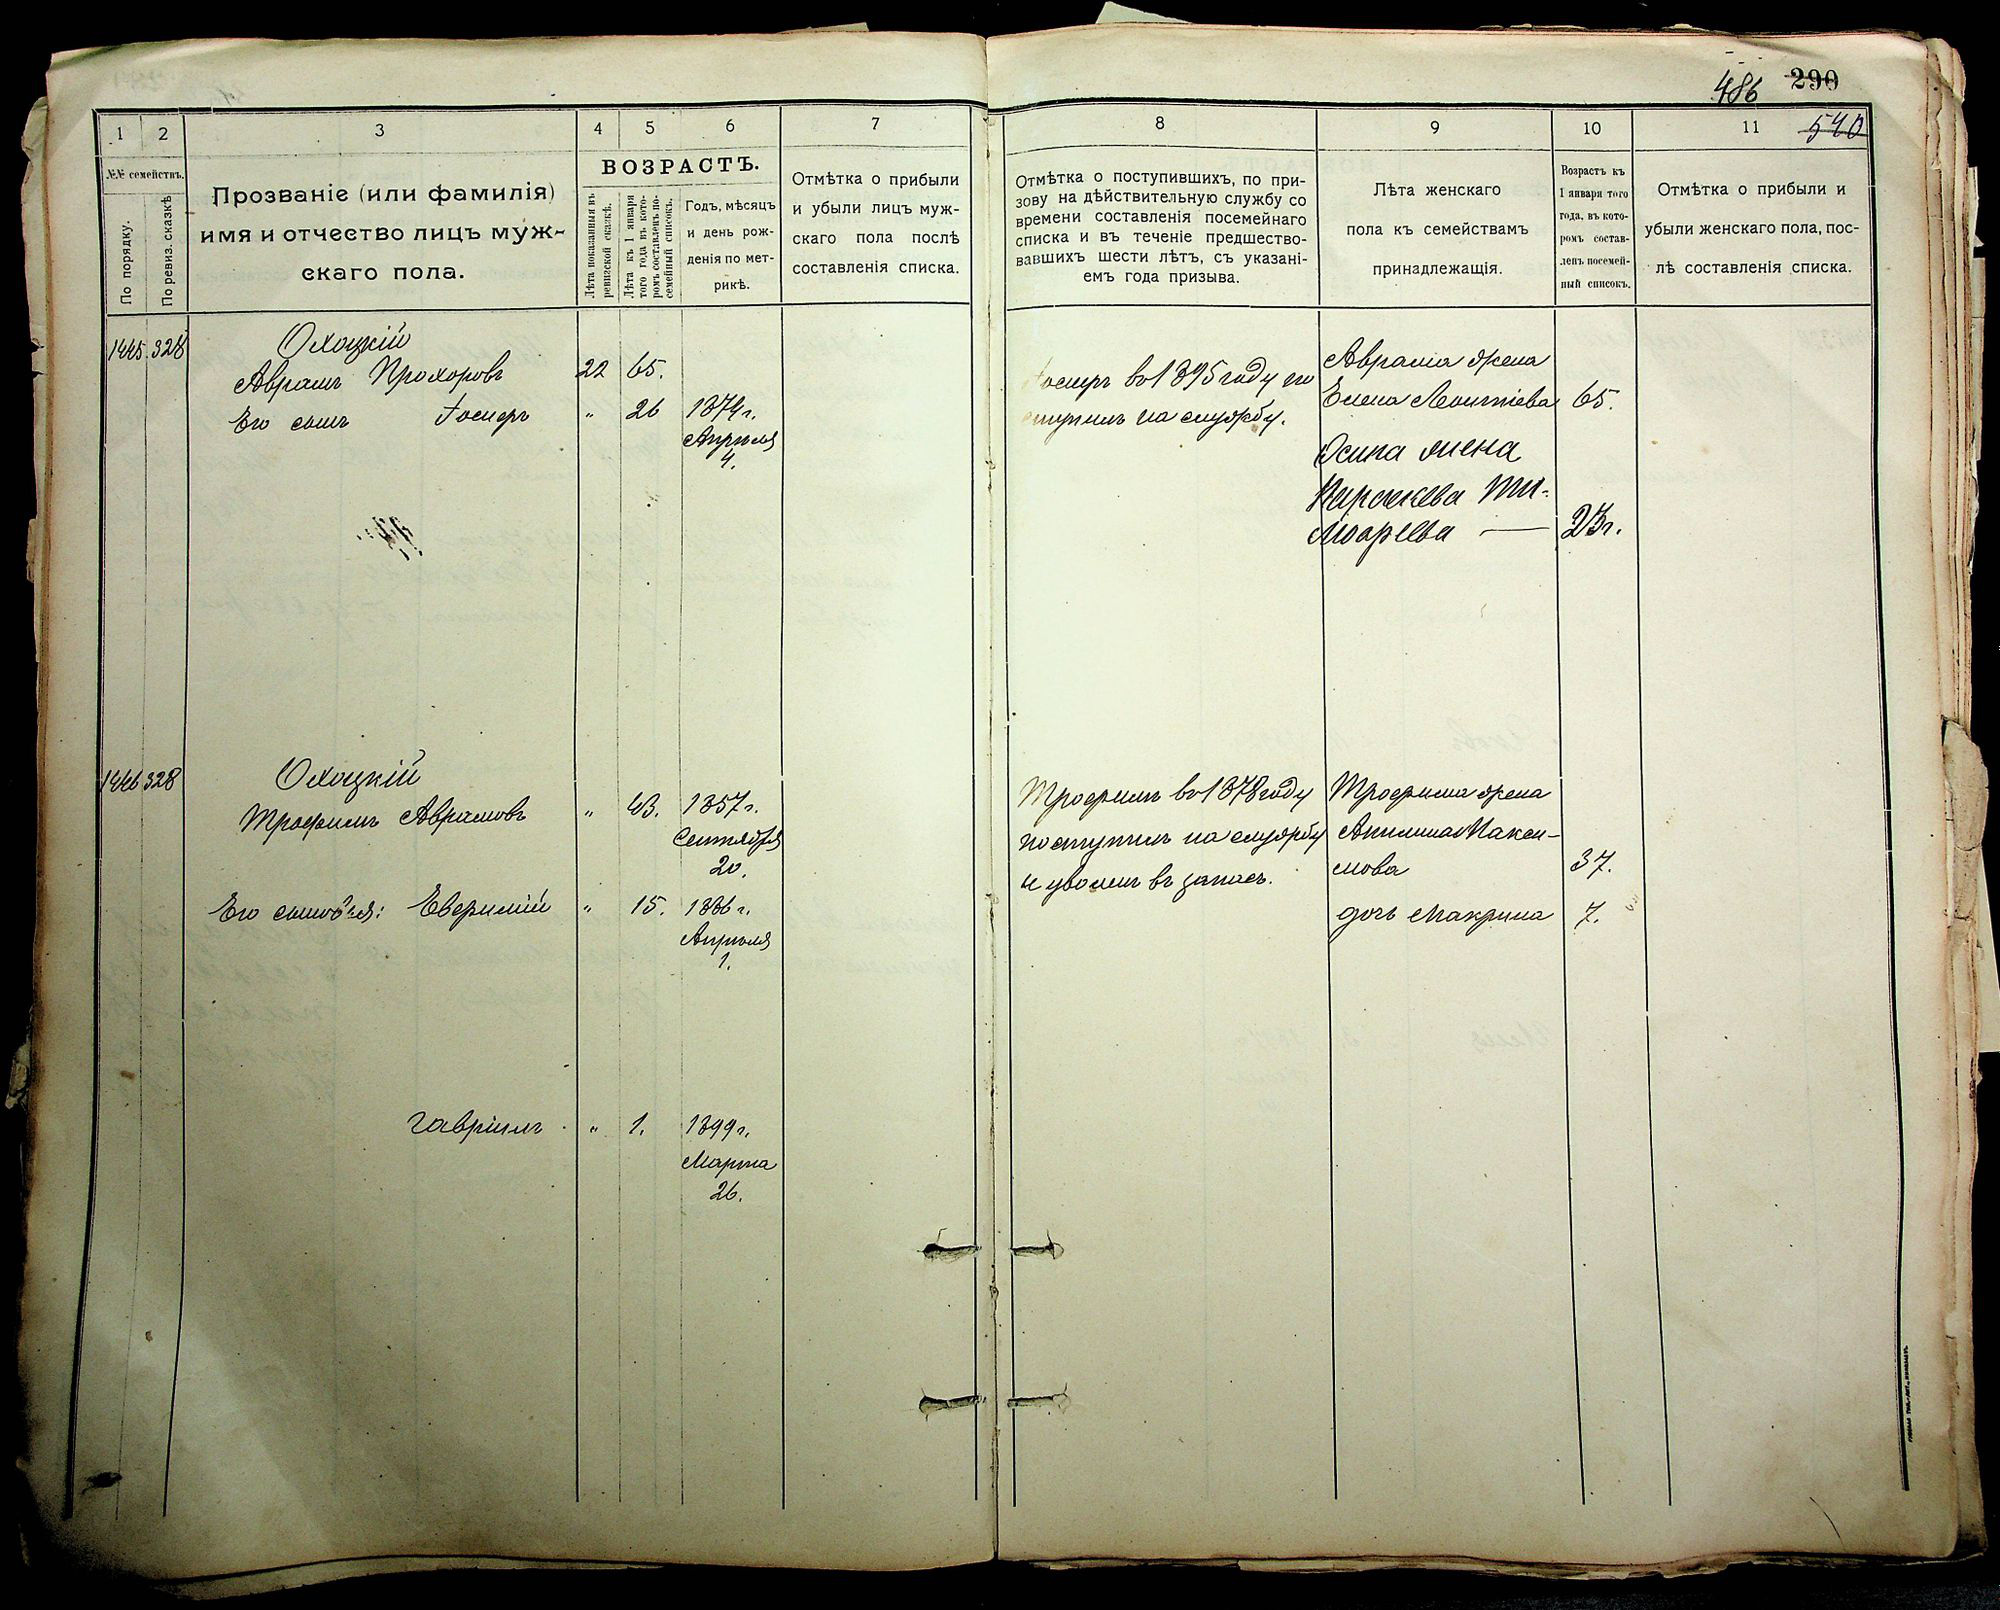 486 290
1 2 3 4 5 6 7
№№ семействъ.
По порядку.
По ревиз. сказкѣ
Прозваніе (или фамилія)
имя и отчество лицъ муж-
скаго пола.
ВОЗРАСТЪ.
Лѣта показанныя въ
ревизской сказкѣ.
Лѣта къ 1 января
того года въ кото-
ромъ составленъ по-
семейный списокъ.
Годъ, мѣсяцъ
и день рож-
денія по мет-
рикѣ.
Отмѣтка о прибыли
и убыли лицъ муж-
скаго пола послѣ
составленія списка.
1445 328 Охоцкій
Аврамъ Прохоровъ 22 65.
Его сынъ Іосифъ " 26 1874 г.
Апрѣля
4.
1446 328 Охоцкій
Трофимъ Аврамовъ " 43. 1857 г.
Сентября
20.
Его сыновья: Евфимій " 15. 1886 г.
Апрѣля
1.
Гавріилъ " 1. 1899 г.
Марта
26.
8 9 10 11 540
Отмѣтка о поступившихъ, по при-
зову на дѣйствительную службу со
времени составленія посемейнаго
списка и въ теченіе предшество-
вавшихъ шести лѣтъ, съ указані-
емъ года призыва.
Лѣта женскаго
пола къ семействамъ
принадлежащія.
Возрастъ къ
1 января того
года, въ кото-
ромъ состав-
ленъ посемей-
ный списокъ.
Отмѣтка о прибыли и
убыли женскаго пола, пос-
лѣ составленія списка.
Іосифъ въ 1895 году по
ступилъ на службу.
Аврама жена
Елена Леонтіева 65.
Осипа жена
Параскева Ти-
мофеева — 23 г.
Трофимъ въ 1878 году
поступилъ на службу
и уволенъ въ запасъ.
Трофима жена
Акилина Макси-
мова 37.
дочь Макрина 7.